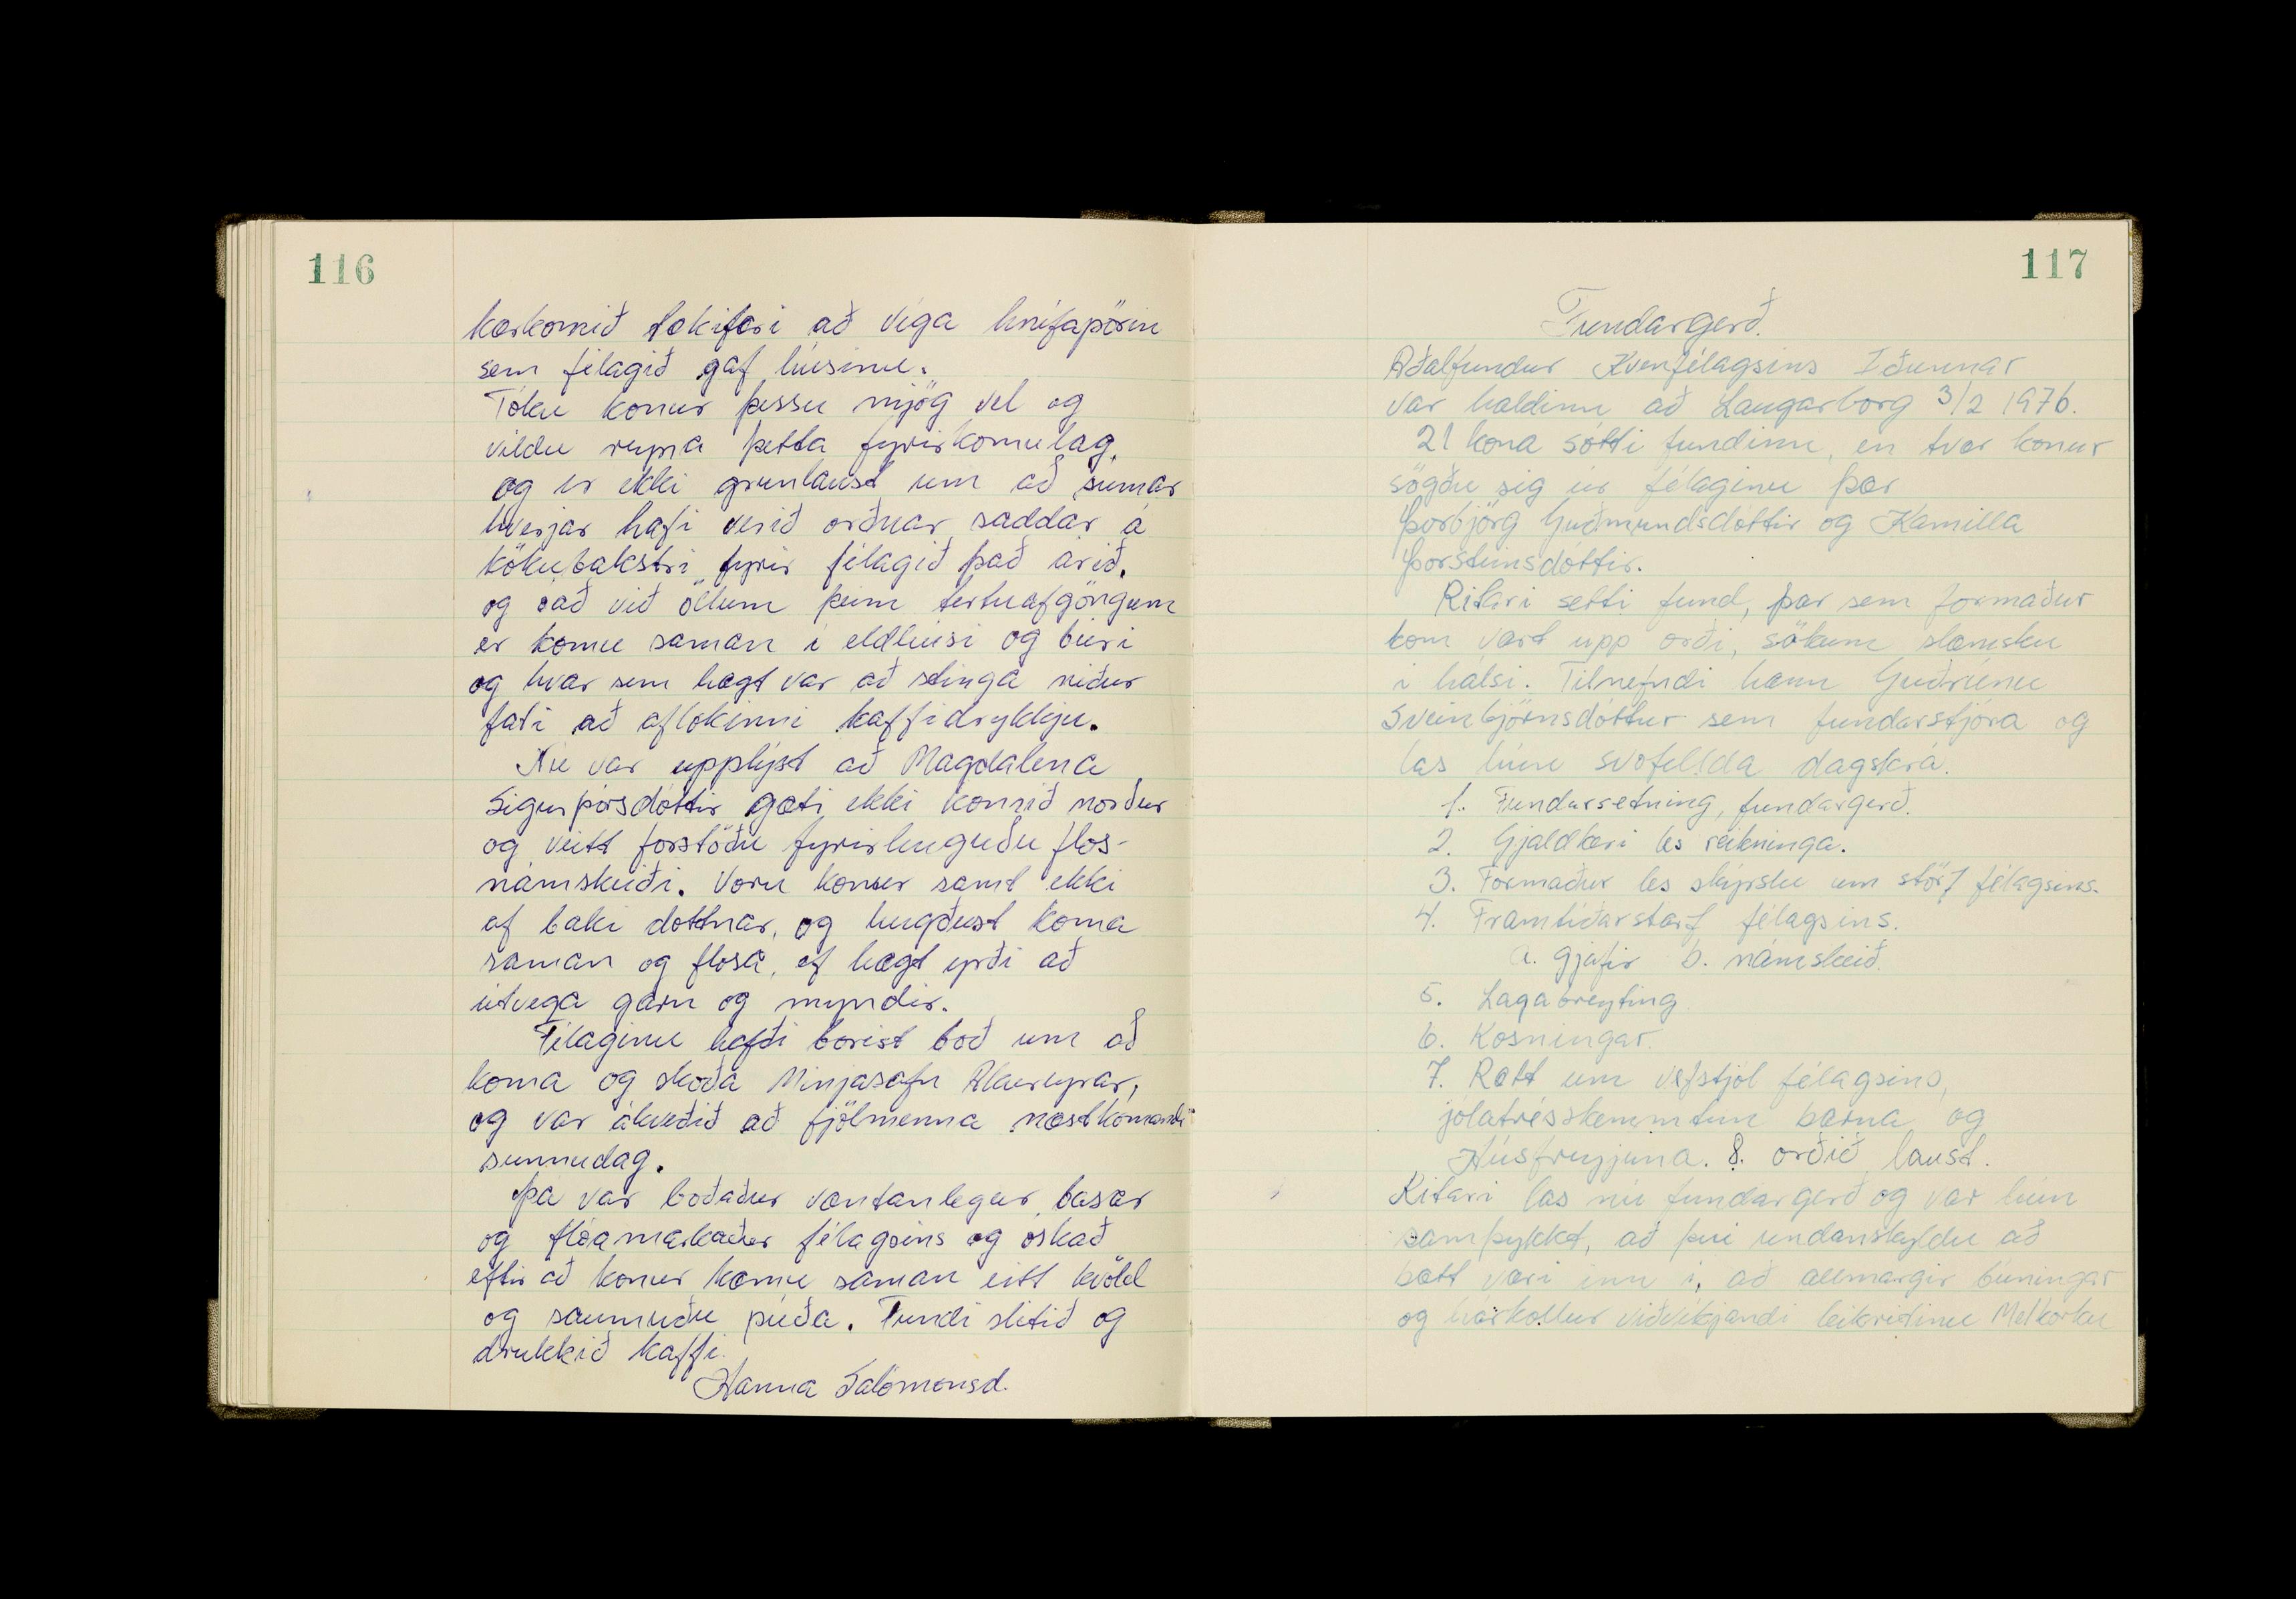 116
kærkomið tækifæri að vígja hnífapörin
sem félagið gaf húsinu.
Tóku konur þessu mjög vel og
vildu reyna þetta fyrirkomulag,
og er ekki grunlaust um að sumar
hverjar hafi verið orðnar saddar á
kökubakstri fyrir félagið það árið,
og það við öllum þeim tertuafgöngum
er komu saman í eldhúsi og búri
og hvar sem hægt var að stinga niður
fati að aflokinni kaffidrykkju.
Nú var upplýst að Magdalena
Sigurþórsdóttir gæti ekki komið norður
og veitt forstöðu fyrirhuguðu flos-
námskeiði. Voru konur samt ekki
af baki dottnar, og hugðust koma
saman og flosa, ef hægt yrði að
útvega garn og myndir.
Félaginu hafði borist boð um að
koma og skoða Minjasafn Akureyrar,
og var ákveðið að fjölmenna næstkomandi
sunnudag.
Þá var boðaður væntanlegur basar
og flóamarkaður félagsins og óskað
eftir að konur kæmu saman eitt kvöld
og saumuðu púða. Fundi slitið og
drukkið kaffi.
Hanna Salómonsd.
117
Fundargerð.
Aðalfundur Kvenfélagsins Iðunnar
var haldinn að Laugarborg 3/2 1976.
21 kona sótti fundinn, en tvær konur
sögðu sig úr félaginu þær
Þorbjörg Guðmundsdóttir og Kamilla
Þorsteinsdóttir.
Ritari setti fund, þar sem formaður
kom vart upp orði, sökum slæmsku
í hálsi. Tilnefndi hann Guðrúnu
Sveinbjörnsdóttur sem fundarstjóra og
las hún svofellda dagskrá.
1. Fundarsetning, fundargerð.
2. Gjaldkeri les reikninga.
3. Formaður les skýrslu um störf félagsins.
4. Framtíðarstarf félagsins.
a. gjafir b. námskeið.
5. Lagabreyting
6. Kosningar.
7. Rætt um vefstjól félagsins,
jólatrésskemmtun barna og
Húsfreyjuna. 8. orðið laust.
Ritari las nú fundargerð og var hún
samþykkt, að því undanskyldu að
bætt væri inn í, að allmargir búningar
og hárkollur viðvíkjandi leikritinu Melkorku